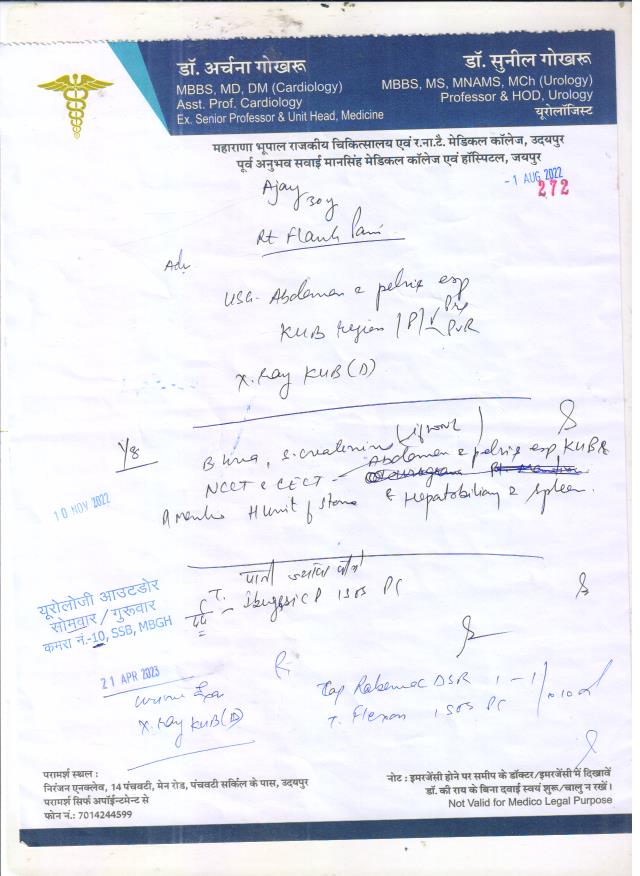 डॉ. अर्चना गोखरू
MBBS, MD, DM (Cardiology)
Asst. Prof. Cardiology
Ex. Senior Professor & Unit Head, Medicine
डॉ. सुनील गोखरू
MBBS, MS, MNAMS, MCh (Urology)
Professor & HOD, Urology
यूरोलॉजिस्ट
महाराणा भूपाल राजकीय चिकित्सालय एवं र.ना.टै. मेडिकल कॉलेज, उदयपुर
पूर्व अनुभव सवाई मानसिंह मेडिकल कॉलेज एवं हॉस्पिटल, जयपुर
-1 AUG 2022
272
Ajay
30y
Rt Flank Pain
Adv
USG. Abdomen & pelvis esp
KUB region
PVR
X. Ray KUB (D)
B urea, S. creatinine
NCCT & CECT Abdomen & pelvis esp KUB &
& Hepatobiliary & Spleen.
H unit of stone
10 NOV 2022
पानी ज्यादा
1 SOS PC
यूरोलॉजी आउटडोर
सोमवार / गुरूवार
कमरा नं.-10, SSB, MBGH
21 APR 2023
X. Ray KUB (D)
Cap Rabemac DSR 1 - 1
T. Flexon 1 SOS PC
परामर्श स्थल :
निरंजन एनक्लेव, 14 पंचवटी, मेन रोड, पंचवटी सर्किल के पास, उदयपुर
परामर्श सिर्फ अपॉईन्टमेन्ट से
फोन नं.: 7014244599
नोट : इमरजेंसी होने पर समीप के डॉक्टर/इमरजेंसी में दिखावें
डॉ. की राय के बिना दवाई स्वयं शुरू/चालु न रखें।
Not Valid for Medico Legal Purpose